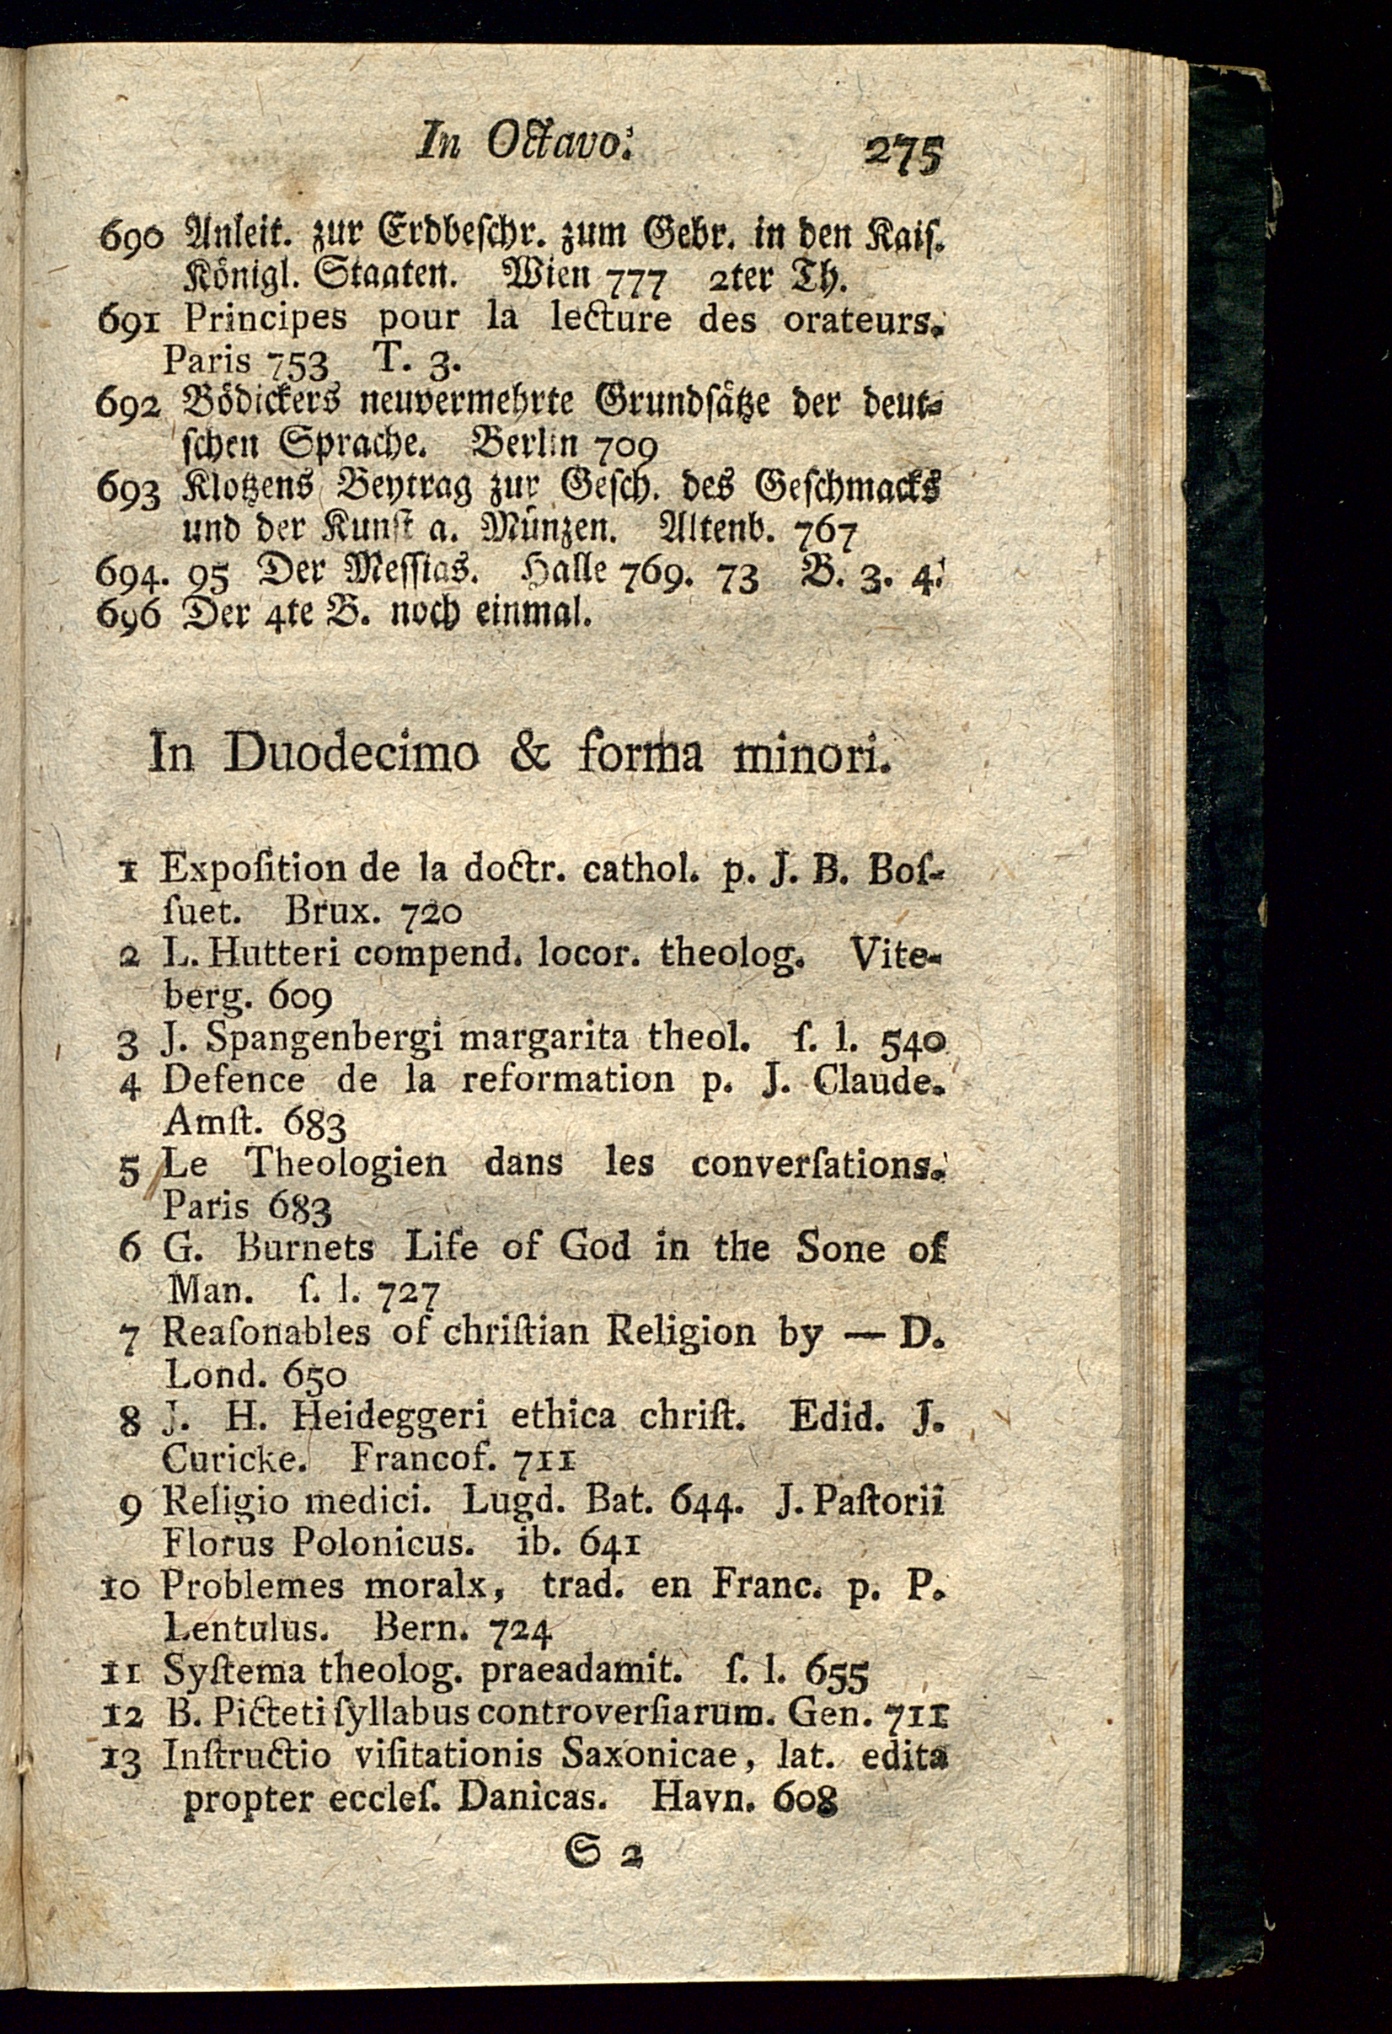 In Octavo. 275
690 Anleit. zur Erdbeſchr. zum Gebr. in den Kaiſ.
Königl. Staaten. Wien 777 2ter Th.
691 Principes pour la lecture des orateurs.
Paris 753 T. 3.
692 Bödickers neuvermehrte Grundſätze der deut-
ſchen Sprache. Berlin 709
693 Klotzens Beytrag zur Geſch. des Geſchmacks
und der Kunſt a. Münzen. Altenb. 767
694. 95 Der Meſſias. Halle 769. 73 B. 3. 4.
696 Der 4te B. noch einmal.
In Duodecimo & forma minori.
1 Expoſition de la doctr. cathol. p. J. B. Boſ-
ſuet. Brux. 720
2 L. Hutteri compend. locor. theolog. Vite-
berg. 609
3 J. Spangenbergi margarita theol. ſ. l. 540
4 Defence de la reformation p. J. Claude.
Amſt. 683
5 Le Theologien dans les converſations.
Paris 683
6 G. Burnets Life of God in the Sone of
Man. ſ. l. 727
7 Reaſonables of chriſtian Religion by — D.
Lond. 650
8 J. H. Heideggeri ethica chriſt. Edid. J.
Curicke. Francof. 711
9 Religio medici. Lugd. Bat. 644. J. Paſtorii
Florus Polonicus. ib. 641
10 Problemes moralx, trad. en Franc. p. P.
Lentulus. Bern. 724
11 Syſtema theolog. praeadamit. ſ. l. 655
12 B. Picteti ſyllabus controverſiarum. Gen. 711
13 Inſtructio viſitationis Saxonicae, lat. edita
propter eccleſ. Danicas. Havn. 608
S 2